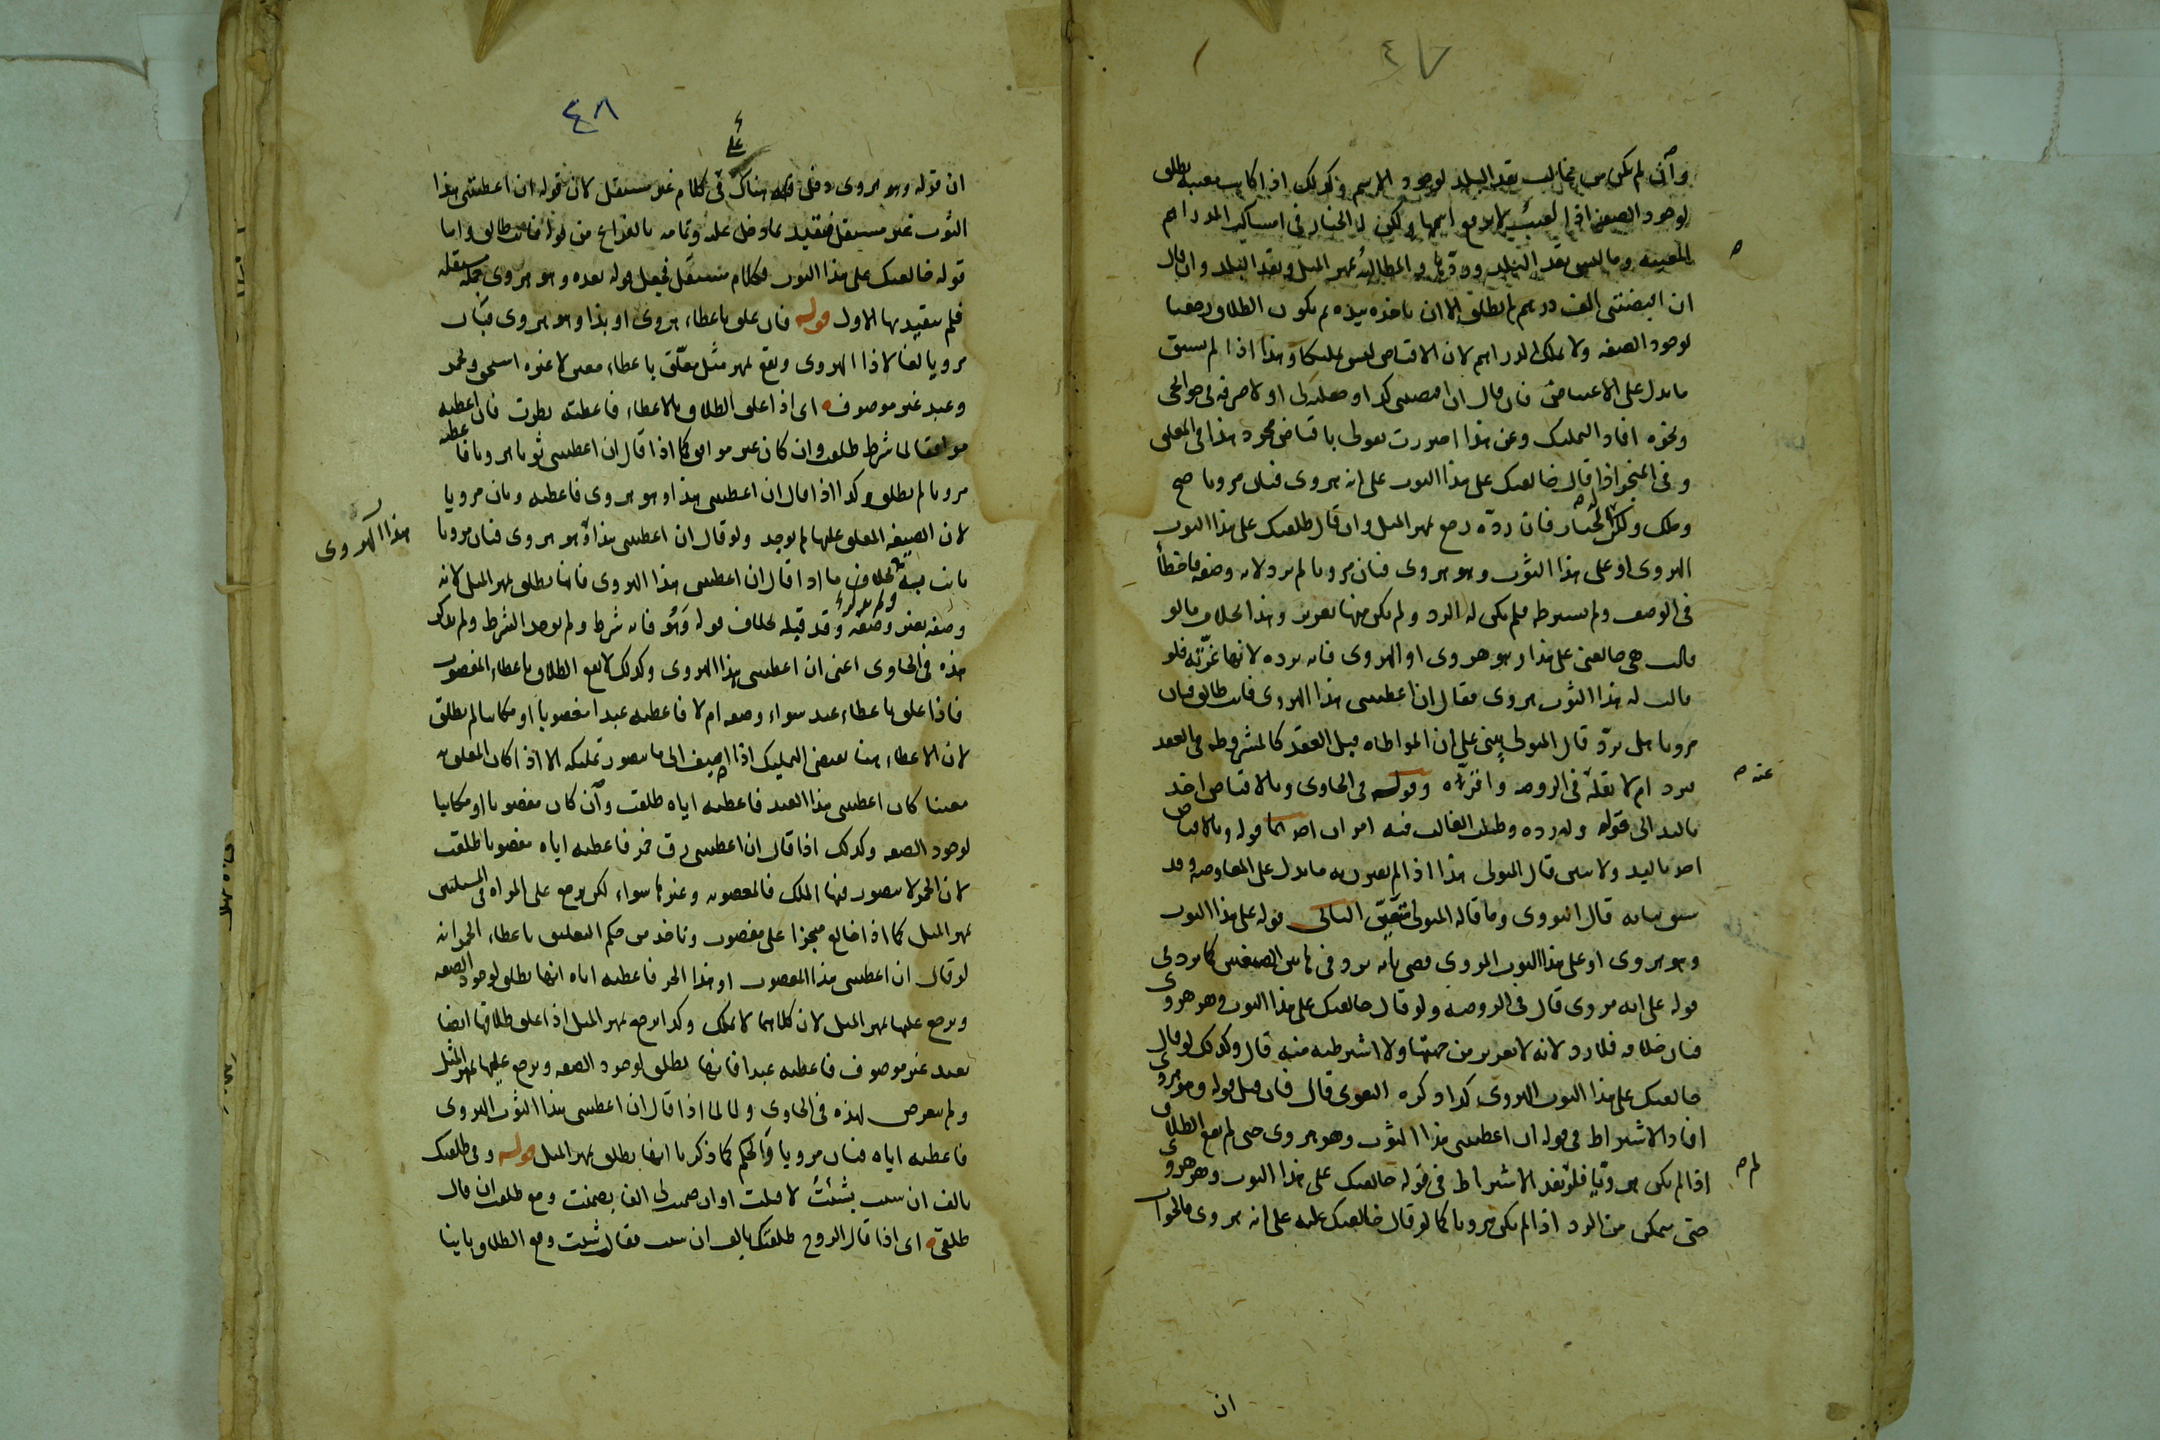 ٤٧
وان لم يكن من غالب نقد البلد لوجود الاسم وكذلك اذا كانت معيبة تطلق
لوجود الصفة اذ العيب لا يرفع اسمها ولكن له الخيار في امساك الدراهم
المعيبة وما ليس نقد البلد وردها والمطالبة بمهر المثل ونقد البلد وان قال
ان اقبضتني الف درهم لم تطلق الا ان ياخذه بيده ثم يكون الطلاق رجعيا
لوجود الصفة ولا يملك الدراهم لان الاقباض ليس تمليكا وهذا اذا لم يسبق
ما يدل على الاعتياض فان قال ان اقبضتني كذا وجعلته لي او لاصرفه في حوائجي
ونحوه افاد التمليك وعن هذا احترزت بقولي باقباض مجرد هذا في المعلق
وفي المنجز اذا قال خالعتك على هذا الثوب على انه هروي فبان مرويا صح
وملك ولكن له الخيار فان رده رجع بمهر المثل وان قال طلقتك على هذا الثوب
الهروي او على هذا الثوب وهو هروي فبان مرويا لم يرد لانه وصفه فاخطأ
في الوصف ولم يشترطه فلم يكن له الرد ولم يكن منها تغرير وهذا بخلاف ما لو
قالت هي خالعني على هذا وهو هروي او الهروي فانه يرده لانها غرته فلو
قالت له هذا الثوب هروي فقال ان اعطيتني هذا الهروي فانت طالق فبان
مرويا هل يرد قال المتولي يبنى على ان المواطاة قبل العقد كالمشروطة في العقد
فيرد ام لا نقله في الروضة واقره وقوله في الحاوي وبالاقباض اخذ
باليد الى قوله وله رده وطلب الغالب فيه امران احدهما قوله وبالاقباض
اخذ باليد ولا شي قال المتولي هذا اذا لم يقترن به ما يدل على المعاوضة وقد
سبق بيانه قال النووي وما قاله المتولي متعين الثاني قوله على هذا الثوب
وهو هروي او على هذا الثوب الهروي قضى بانه يرد في هاتين الصيغتين كما يرد في
قوله على انه هروي قال في الروضة ولو قال خالعتك على هذا الثوب وهو هروي
فبان خلافه فلا رد لانه لا تغرير من جهتها ولا اشتراط منه قال وكذلك لو قال
خالعتك على هذا الثوب الهروي كذا ذكره البغوي قال فان قيل قوله وهو هروي
افاد الاشتراط في قوله ان اعطيتني هذا الثوب وهو هروي حتى لم يقع الطلاق
اذا لم يكن هرويا فلم لم يفد الاشتراط في قوله خالعتك على هذا الثوب وهو هروي
حتى يتمكن من الرد اذا لم يكن هرويا كما لو قال خالعتك عليه على انه هروي فالجواب
ان
٤٨
ان قوله وهو هروي دخل هناك على كلام غير مستقل لان قوله ان اعطيتني هذا
الثوب غير مستقل فتقيد بما دخل عليه وتمامه بالفراغ من قوله فانت طالق واما
قوله خالعتك على هذا الثوب فكلام مستقل فجعل قوله بعده وهو هروي جملة مستقلة
فلم يتقيد بها الاول قوله فان علق باعطاء هروي او بهذا وهو هروي فبان
مرويا لغا لا ذا الهروي ويقع بمهر مثل معلق باعطاء معين لا غيره اسمي وخمر
وعبد غير موصوف اي اذا علق الطلاق بالاعطاء فاعطته نظرت فان اعطته
موافقا لما شرط طلقت وان كان غير موافق كما اذا قال ان اعطيتني ثوبا هرويا فاعطته
مرويا لم تطلق وكذا اذا قال ان اعطيتني هذا وهو هروي فاعطته وبان مرويا
لان الصيغة المعلق عليها لم توجد ولو قال ان اعطيتني هذا الهروي فبان مرويا
هذا الهروي
بانت منه بخلاف ما اذا قال ان اعطيتني هذا الهروي فانها تطلق بمهر المثل لانه
وصفه بغير وصفه وقد قبله بخلاف قوله وهو فانه شرط ولم يوجد الشرط ولم يذكر
هذه في الحاوي اعني ان اعطيتني هذا الهروي وكذلك لا يقع الطلاق باعطاء المغصوب
فاذا علق باعطاء عبد سواء وصفه ام لا فاعطته عبدا مغصوبا او مكاتبا لم تطلق
لان الاعطاء هنا يقتضي التمليك اذا اضيف الى ما يتصور تمليكه الا اذا كان المعلق به
معينا كان اعطيتني هذا العبد فاعطته اياه طلقت وان كان مغصوبا او مكاتبا
لوجود الصفة وكذلك اذا قال ان اعطيتني زق خمر فاعطته اياه مغصوبا طلقت
لان الخمر لا يتصور فيها الملك فالمغصوبة وغيرها سواء لكن يرجع على المراة في المسئلتين
بمهر المثل كما اذا خالع منجزا على مغصوب وناخذ من حكم التعليق باعطاء الخمر انه
لو قال ان اعطيتني هذا المغصوب او هذا الحر فاعطته اياه انها تطلق لوجود الصفة
ويرجع عليها بمهر المثل لان كلاهما لا يملك وكذا يرجع بمهر المثل اذا علق طلاقها ايضا
بعبد غير موصوف فاعطته عبدا فانها تطلق لوجود الصفة ويرجع عليها بمهر المثل
ولم يتعرض لهذه في الحاوي ولا لما اذا قال ان اعطيتني هذا الثوب الهروي
فاعطته اياه فبان مرويا والحكم كما ذكرنا انها تطلق بمهر المثل قوله وفي طلقتك
بالف ان شئت بشئت لا قبلت او ان ضمنت لي الفا بضمنت ومع طلقت ان قال
طلقي اي اذا قال الزوج طلقتك بالف ان شئت فقالت شئت وقع الطلاق باينا